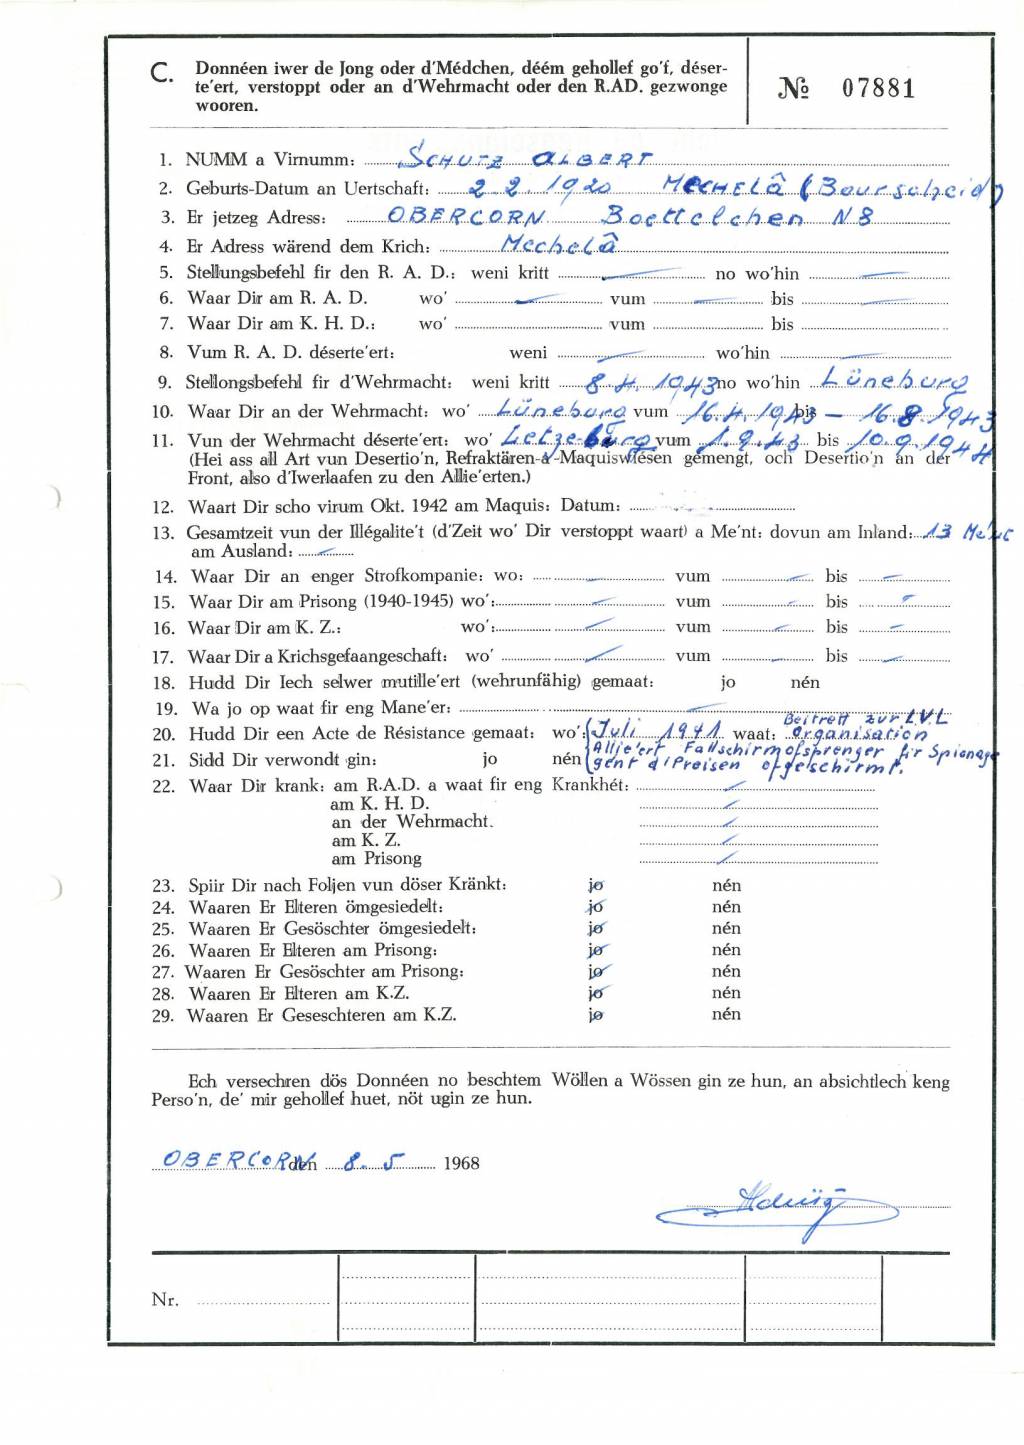 C. Donnéen iwer de Jong oder d'Médchen, déém gehollef go'f, déser-
te'ert, verstoppt oder an d'Wehrmacht oder den R.AD. gezwonge
wooren.
№ 07881
1. NUMM a Virnumm: SCHUTZ ALBERT
2. Geburts-Datum an Uertschaft: 2.2.1920 MECHELÂ (Bourscheid)
3. Er jetzeg Adress: OBERCORN Boettelchen N8
4. Er Adress wärend dem Krich: Mechelâ
5. Stellungsbefehl fir den R. A. D.: weni kritt — no wo'hin —
6. Waar Dir am R. A. D. wo' — vum — bis —
7. Waar Dir am K. H. D.: wo' vum bis
8. Vum R. A. D. déserte'ert: weni — wo'hin —
9. Stellongsbefehl fir d'Wehrmacht: weni kritt 8.4.1943 no wo'hin Lüneburg
10. Waar Dir an der Wehrmacht: wo' Lüneburg vum 16.4.1943 bis – 16.8.1943
11. Vun der Wehrmacht déserte'ert: wo' Letzeburg vum 1.9.43 bis 10.9.1944
(Hei ass all Art vun Desertio'n, Refraktären-a-Maquiswiesen gemengt, och Desertio'n an der
Front, also d'Iwerlaafen zu den Allie'erten.)
12. Waart Dir scho virum Okt. 1942 am Maquis: Datum:
13. Gesamtzeit vun der Illégalite't (d'Zeit wo' Dir verstoppt waart) a Me'nt: dovun am Inland: 13 Me'nt
am Ausland: —
14. Waar Dir an enger Strofkompanie: wo: — vum — bis —
15. Waar Dir am Prisong (1940-1945) wo': — vum — bis —
16. Waar Dir am K. Z.: wo': — vum — bis —
17. Waar Dir a Krichsgefaangeschaft: wo' — vum — bis —
18. Hudd Dir Iech selwer mutille'ert (wehrunfähig) gemaat: jo nén
19. Wa jo op waat fir eng Mane'er: —
Beitrett zur L.V.L
20. Hudd Dir een Acte de Résistance gemaat: wo': Juli 1941 waat: Organisation
Allie'ert Fallschirmofsprenger fir Spionage
21. Sidd Dir verwondt gin: jo nén gent d'Preisen ofgeschirmt.
22. Waar Dir krank: am R.A.D. a waat fir eng Krankhét: —
am K. H. D. —
an der Wehrmacht. —
am K. Z. —
am Prisong —
23. Spiir Dir nach Foljen vun döser Kränkt: jo nén
24. Waaren Er Elteren ömgesiedelt: jo nén
25. Waaren Er Gesöschter ömgesiedelt: jo nén
26. Waaren Er Elteren am Prisong: jo nén
27. Waaren Er Gesöschter am Prisong: jo nén
28. Waaren Er Elteren am K.Z. jo nén
29. Waaren Er Geseschteren am K.Z. jo nén
Ech versechren dös Donnéen no beschtem Wöllen a Wössen gin ze hun, an absichtlech keng
Perso'n, de' mir gehollef huet, nöt ugin ze hun.
OBERCORN den 8.5 1968
Nr.